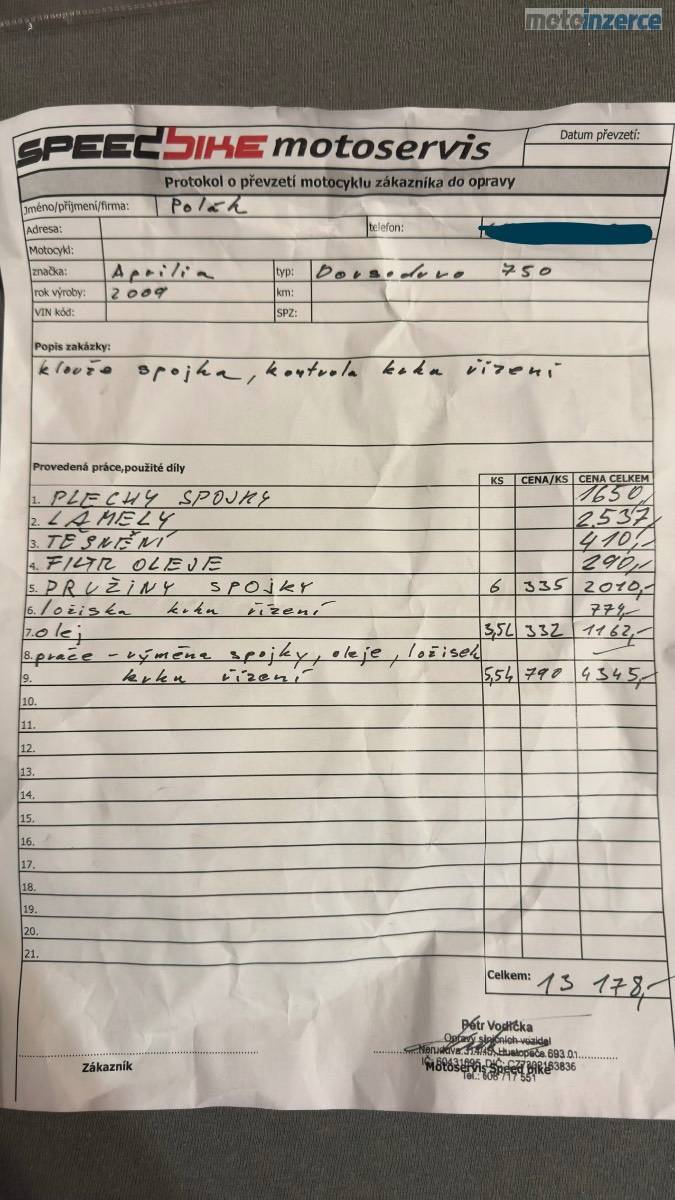 motoinzerce
SPEEDbIKE motoservis
Datum převzetí:
Protokol o převzetí motocyklu zákazníka do opravy
Jméno/příjmení/firma: Polák
Adresa: telefon:
Motocykl:
značka: Aprilia typ: Dorsoduro 750
rok výroby: 2009 km:
VIN kód: SPZ:
Popis zakázky:
klouže spojka, kontrola krku řízení
Provedená práce,použité díly KS CENA/KS CENA CELKEM
1. PLECHY SPOJKY 1650,-
2. LAMELY 2.537,-
3. TĚSNĚNÍ 410,-
4. FILTR OLEJE 290,-
5. PRUŽINY SPOJKY 6 335 2010,-
6. ložiska krku řízení 774,-
7. olej 3,5L 332 1162,-
8. práce - výměna spojky, oleje, ložisek
9. krku řízení 5,5h 790 4345,-
10.
11.
12.
13.
14.
15.
16.
17.
18.
19.
20.
21.
Celkem: 13 178,-
Petr Vodička
Opravy silničních vozidel
Nerudova 314/45, Hustopeče 693 01
Zákazník
Motoservis Speed bike
Tel.: 608 717 551